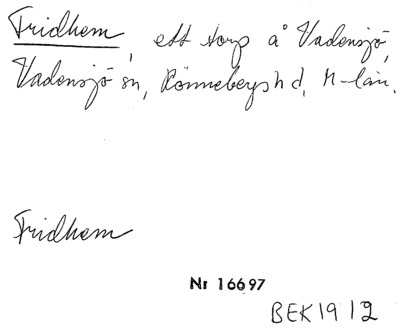 Fridhem, ett torp å Vadensjö,
Vadensjö sn, Rönnebergs hd, M-län.
Fridhem
Nr 16697
BEK1912